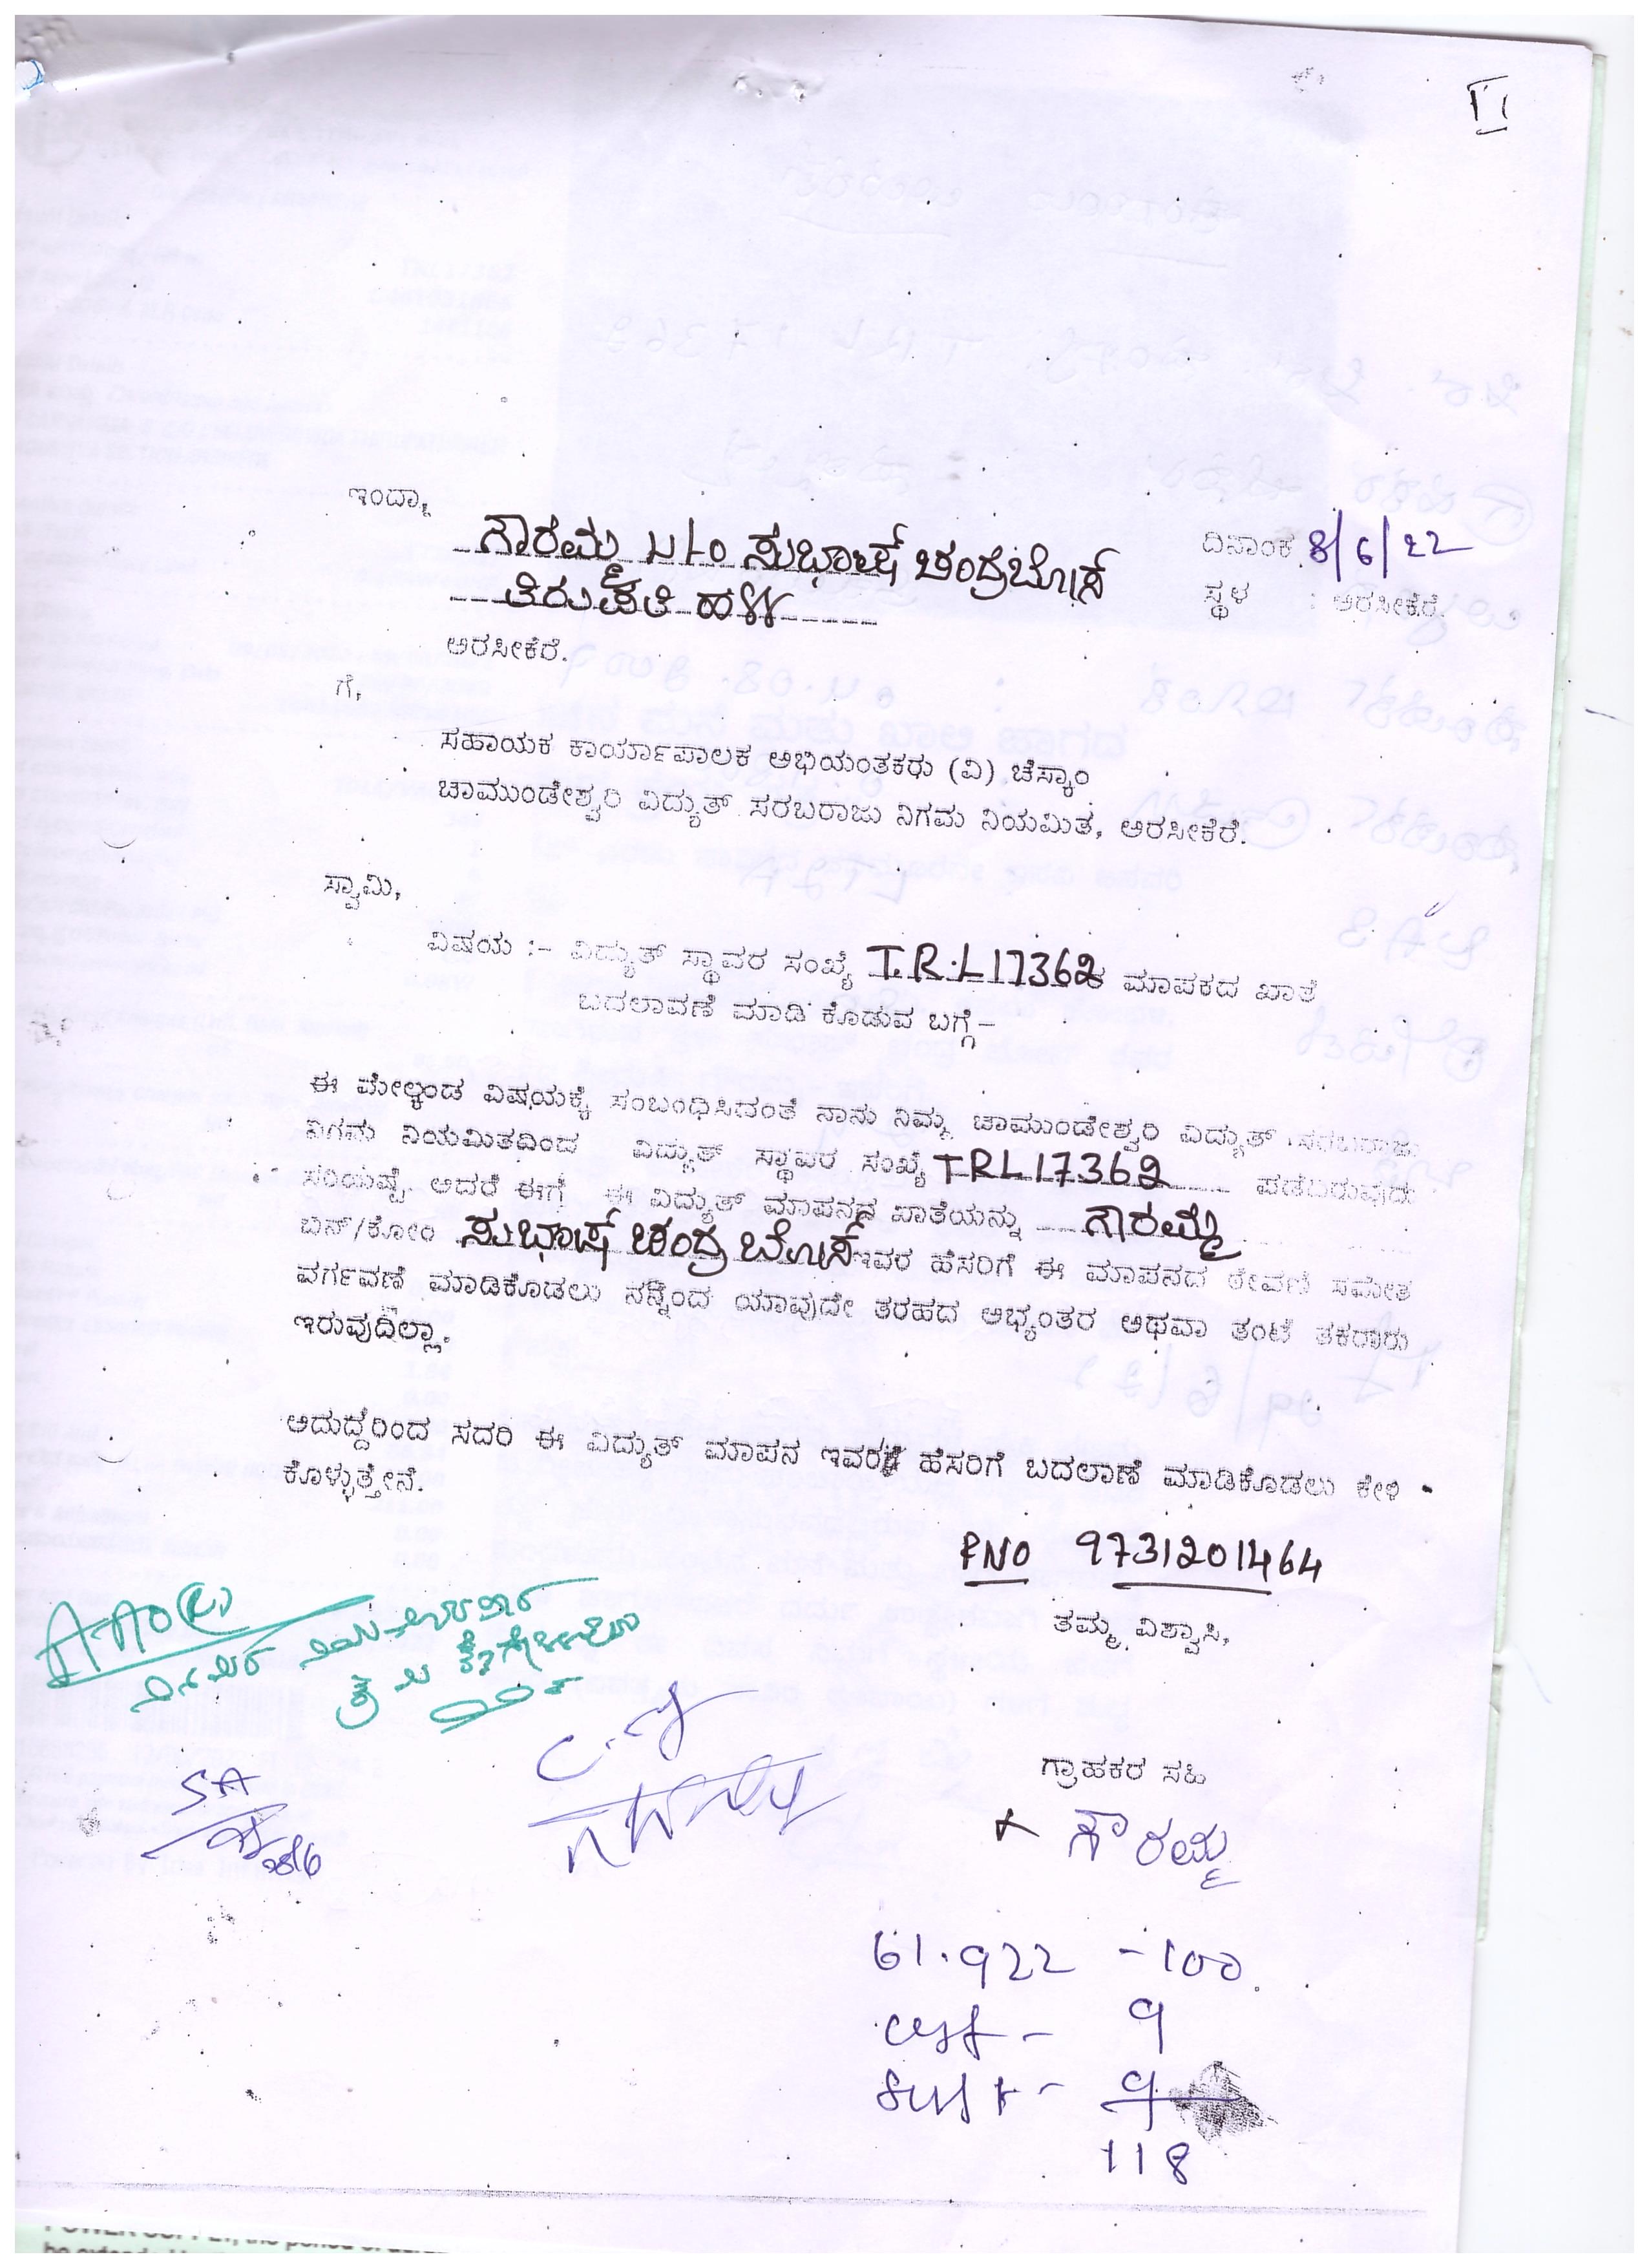 ಇಂದಾ,
ಗೌರಮ್ಮ ೫/೦ ಸುಭಾಷ್ ಚಂದ್ರಬೋಸ್
ದಿನಾಂಕ 8/6/22
ತಿರುಪತಿ ಹಳ್ಳಿ
ಸ್ಥಳ : ಅರಸೀಕೆರೆ.
ಅರಸೀಕೆರೆ.
ಗೆ,
ಸಹಾಯಕ ಕಾರ್ಯಾಪಾಲಕ ಅಭಿಯಂತಕರು (ವಿ) ಚೆಸ್ಕಾಂ
ಚಾಮುಂಡೇಶ್ವರಿ ವಿದ್ಯುತ್ ಸರಬರಾಜು ನಿಗಮ ನಿಯಮಿತ, ಅರಸೀಕೆರೆ.
ಸ್ವಾಮಿ,
ವಿಷಯ :- ವಿದ್ಯುತ್ ಸ್ಥಾವರ ಸಂಖ್ಯೆ T.R.L17362 ಮಾಪಕದ ಖಾತೆ
ಬದಲಾವಣೆ ಮಾಡಿ ಕೊಡುವ ಬಗ್ಗೆ-
ಈ ಮೇಲ್ಕಂಡ ವಿಷಯಕ್ಕೆ ಸಂಬಂಧಿಸಿದಂತೆ ನಾನು ನಿಮ್ಮ ಚಾಮುಂಡೇಶ್ವರಿ ವಿದ್ಯುತ್ ಸರಬರಾಜು
ನಿಗಮ ನಿಯಮಿತದಿಂದ ವಿದ್ಯುತ್ ಸ್ಥಾವರ ಸಂಖ್ಯೆ TRL17362 ಪಡೆದಿರುವುದು
ಸರಿಯಷ್ಟೆ. ಆದರೆ ಈಗ ಈ ವಿದ್ಯುತ್ ಮಾಪನದ ಖಾತೆಯನ್ನು ಗೌರಮ್ಮ
ಬಿನ್/ಕೋಂ ಸುಭಾಷ್ ಚಂದ್ರ ಬೋಸ್ ಇವರ ಹೆಸರಿಗೆ ಈ ಮಾಪನದ ಠೇವಣಿ ಸಮೇತ
ವರ್ಗವಣೆ ಮಾಡಿಕೊಡಲು ನನ್ನಿಂದ ಯಾವುದೇ ತರಹದ ಅಭ್ಯಂತರ ಅಥವಾ ತಂಟೆ ತಕರಾರು
ಇರುವುದಿಲ್ಲಾ.
ಆದುದ್ದರಿಂದ ಸದರಿ ಈ ವಿದ್ಯುತ್ ಮಾಪನ ಇವರ ಹೆಸರಿಗೆ ಬದಲಾಣೆ ಮಾಡಿಕೊಡಲು ಕೇಳಿ
ಕೊಳ್ಳುತ್ತೇನೆ.
PNO 9731201464
ತಮ್ಮ ವಿಶ್ವಾಸಿ,
AAO(R)
SA
28/6
ಗ್ರಾಹಕರ ಸಹಿ
ಗೌರಮ್ಮ
61.922 - 100
cgst - 9
sgst - 9
118